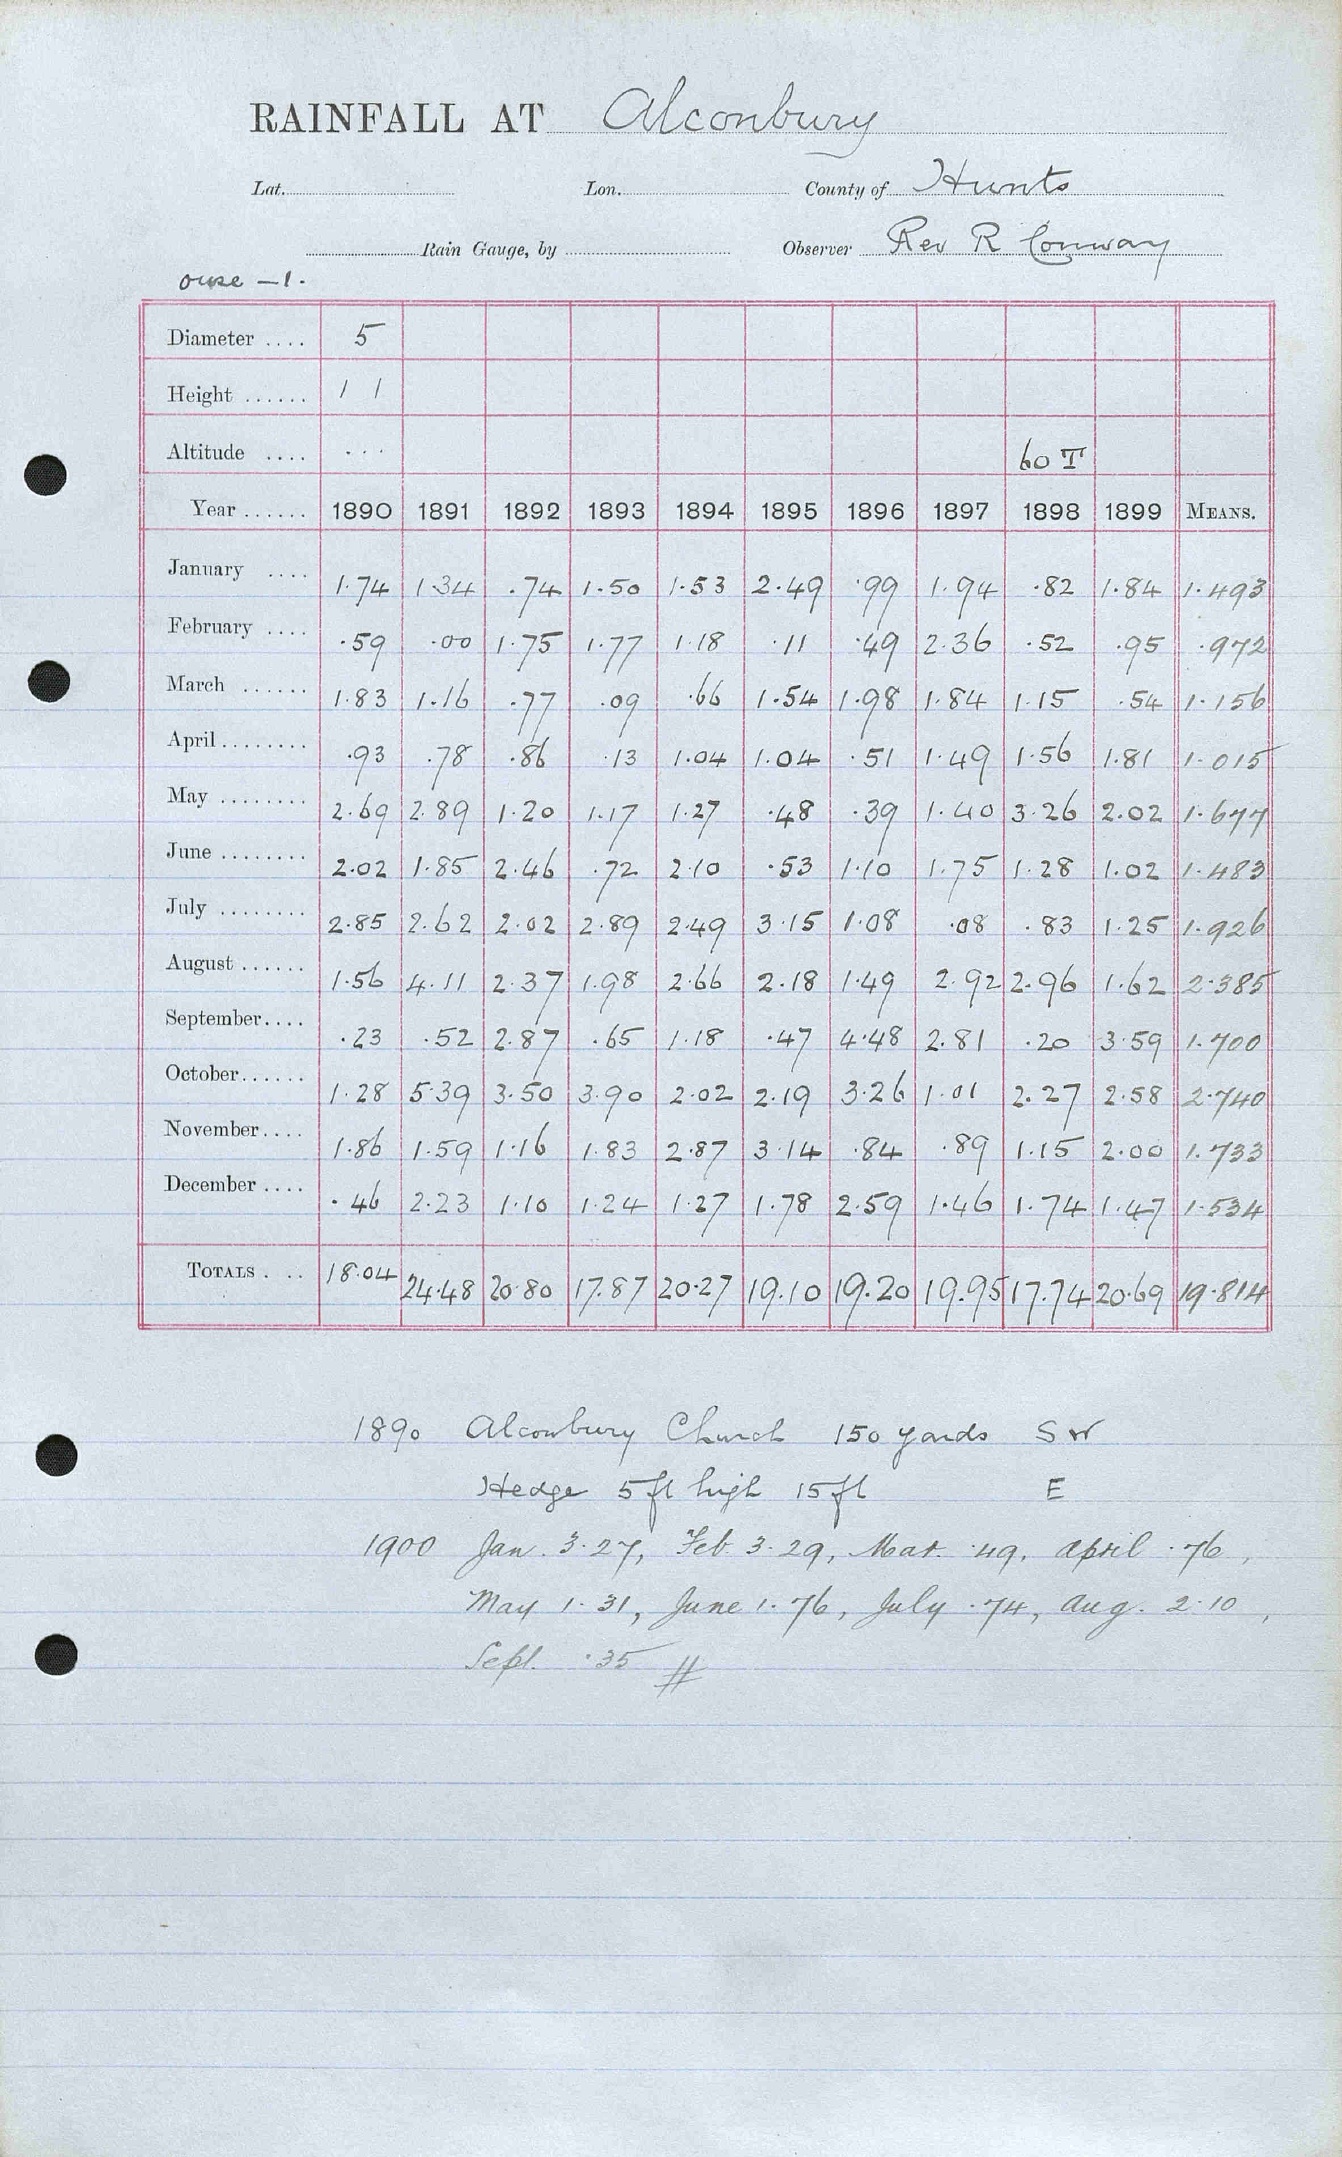 RAINFALL AT Alconbury
Lat. Lon. County of Hunts
Rain Gauge, by Observer Rev R Conway
ouse - 1.
Diameter .... 5
Height ...... 1 1
Altitude .... ... 60 T
Year ...... 1890 1891 1892 1893 1894 1895 1896 1897 1898 1899 MEANS.
January .... 1.74 1.34 .74 1.50 1.53 2.49 .99 1.94 .82 1.84 1.493
February .... .59 .00 1.75 1.77 1.18 .11 .49 2.36 .52 .95 .972
March ...... 1.83 1.16 .77 .09 .66 1.54 1.98 1.84 1.15 .54 1.156
April ........ .93 .78 .86 .13 1.04 1.04 .51 1.49 1.56 1.81 1.015
May ........ 2.69 2.89 1.20 1.17 1.27 .48 .39 1.40 3.26 2.02 1.677
June ........ 2.02 1.85 2.46 .72 2.10 .53 1.10 1.75 1.28 1.02 1.483
July ........ 2.85 2.62 2.02 2.89 2.49 3.15 1.08 .08 .83 1.25 1.926
August ...... 1.56 4.11 2.37 1.98 2.66 2.18 1.49 2.92 2.96 1.62 2.385
September .... .23 .52 2.87 .65 1.18 .47 4.48 2.81 .20 3.59 1.700
October ...... 1.28 5.39 3.50 3.90 2.02 2.19 3.26 1.01 2.27 2.58 2.740
November .... 1.86 1.59 1.16 1.83 2.87 3.14 .84 .89 1.15 2.00 1.733
December .... .46 2.23 1.10 1.24 1.27 1.78 2.59 1.46 1.74 1.47 1.534
TOTALS . .. 18.04 24.48 20.80 17.87 20.27 19.10 19.20 19.95 17.74 20.69 19.814
1890 Alconbury Church 150 yards SW
Hedge 5ft high 15ft E
1900 Jan. 3.27, Feb. 3.29, Mar. .49, April .76,
May 1.31, June 1.76, July .74, Aug. 2.10,
Sept. .35 //